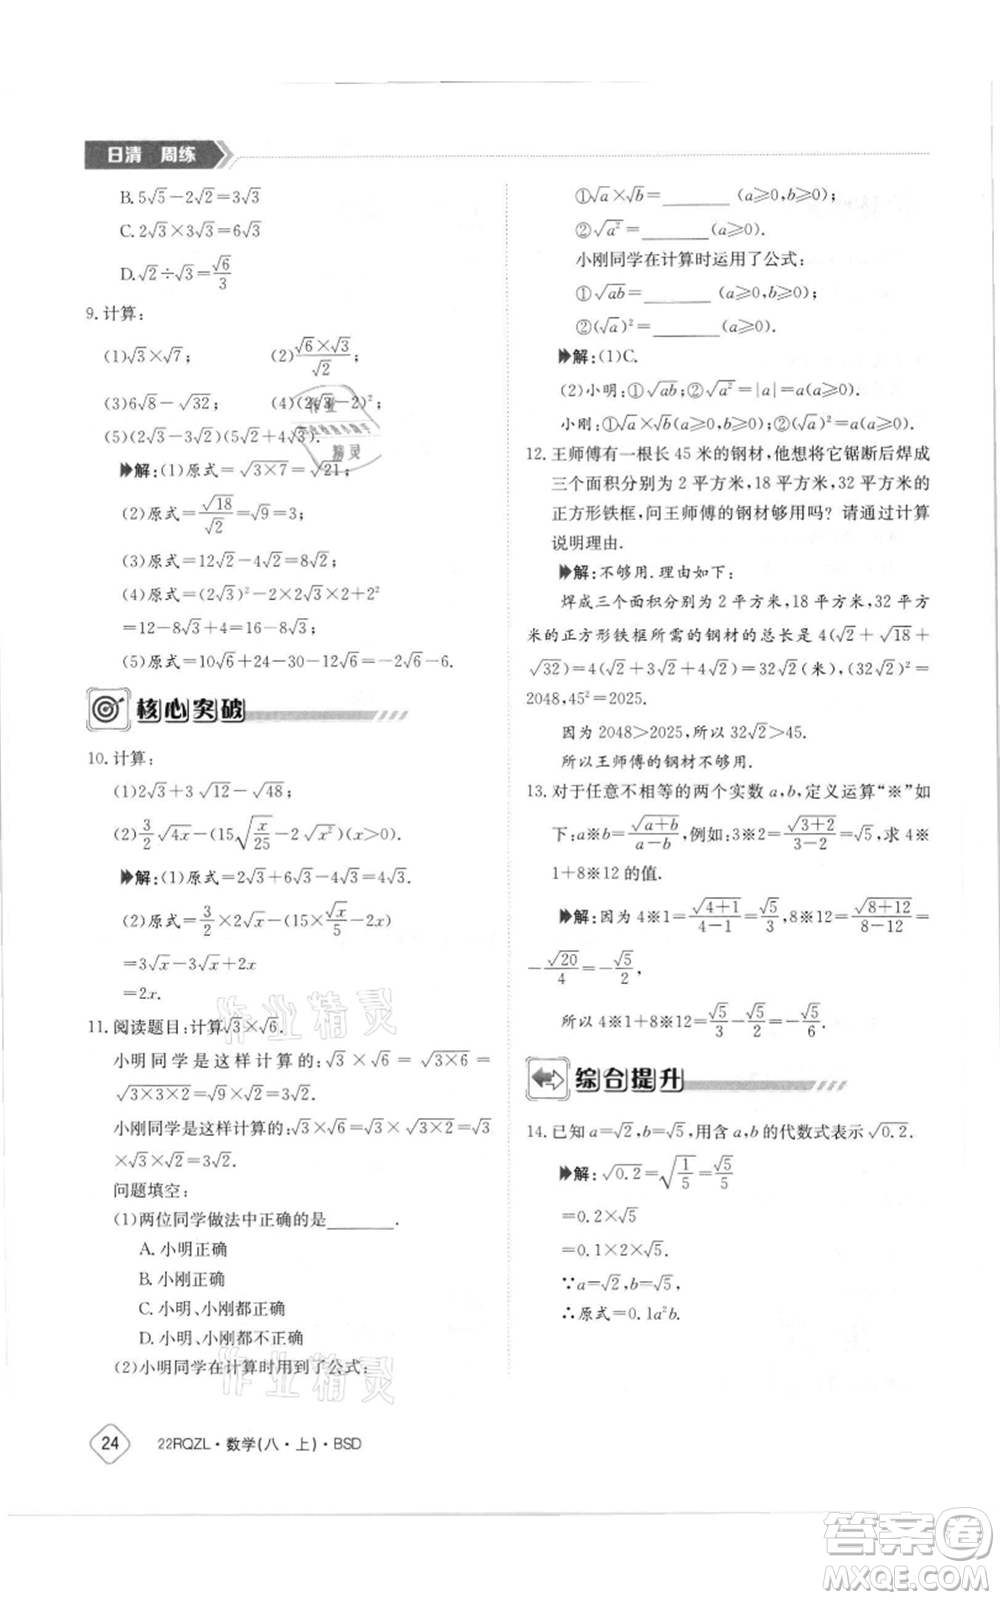 日清 周练
B. 5√5−2√2=3√3
C. 2√3×3√3=6√3
D. √2÷√3=√6/3
9. 计算:
(1)√3×√7; (2)(√6×√3)/√2;
(3)6√8−√32; (4)(2√3−2)²;
(5)(2√3−√2)(5√2+4√3).
解:(1)原式=√(3×7)=√21;
(2)原式=√18/√2=√9=3;
(3)原式=12√2−4√2=8√2;
(4)原式=(2√3)²−2×2√3×2+2²
=12−8√3+4=16−8√3;
(5)原式=10√6+24−10−4√6=
核心突破
10. 计算:
(1)2√3+3√12−√48;
(2)3/2√4x−(15√(x/25)−2√x²)(x>0).
解:(1)原式=2√3+6√3−4√3=4√3.
(2)原式=3/2×2√x−(15×√x/5−2x)
=3√x−3√x+2x
=2x.
11. 阅读题目:计算√3×√6.
小明同学是这样计算的:√3×√6=√(3×6)=
√(3×3×2)=√9×√2=3√2.
小刚同学是这样计算的:√3×√6=√3×√(3×2)=√3
×√3×√2=3√2.
问题填空:
(1)两位同学做法中正确的是______.
A. 小明正确
B. 小刚正确
C. 小明、小刚都正确
D. 小明、小刚都不正确
(2)小明同学在计算时用到了公式:
①√a×√b=______(a⩾0,b⩾0);
②√a²=______(a⩾0).
小刚同学在计算时运用了公式:
①√ab=______(a⩾0,b⩾0);
②(√a)²=______(a⩾0).
解:(1)C.
(2)小明:①√ab;②√a²=|a|=a(a⩾0).
小刚:①√a×√b(a⩾0,b⩾0);②a(a⩾0).
12. 王师傅有一根长 45 米的钢材,他想将它锯断后焊成
三个面积分别为 2 平方米,18 平方米,32 平方米的
正方形铁框,问王师傅的钢材够用吗? 请通过计算
说明理由.
解:不够用.理由如下:
焊成三个面积分别为 2 平方米,18 平方米,32 平方
米的正方形铁框所需的钢材的总长是 4(√2+√18+
√32)=4(√2+3√2+4√2)=32√2(米),(32√2)²=
2048,45²=2025.
因为 2048>2025,所以 32√2>45.
所以王师傅的钢材不够用.
13. 对于任意不相等的两个实数 a,b,定义运算“※”如
下:a※b=√(a+b)/(a−b),例如:3※2=√(3+2)/(3−2)=√5,求 4※
1+8※12 的值.
解:因为 4※1=√(4+1)/(4−1)=√5/3,8※12=√(8+12)/(8−12)=
−√20/4=−√5/2,
所以 4※1+8※12=√5/3−√5/2=−√5/6.
综合提升
14. 已知 a=√2,b=√5,用含 a,b 的代数式表示√0.2.
解:√0.2=√(1/5)=√5/5
=0.2×√5
=0.1×2×√5.
∵a=√2,b=√5,
∴原式=0.1a²b.
24 22RQZL·数学(八·上)·BSD
作业精灵
作业精灵
作业
精灵
答案卷
MXQE.COM